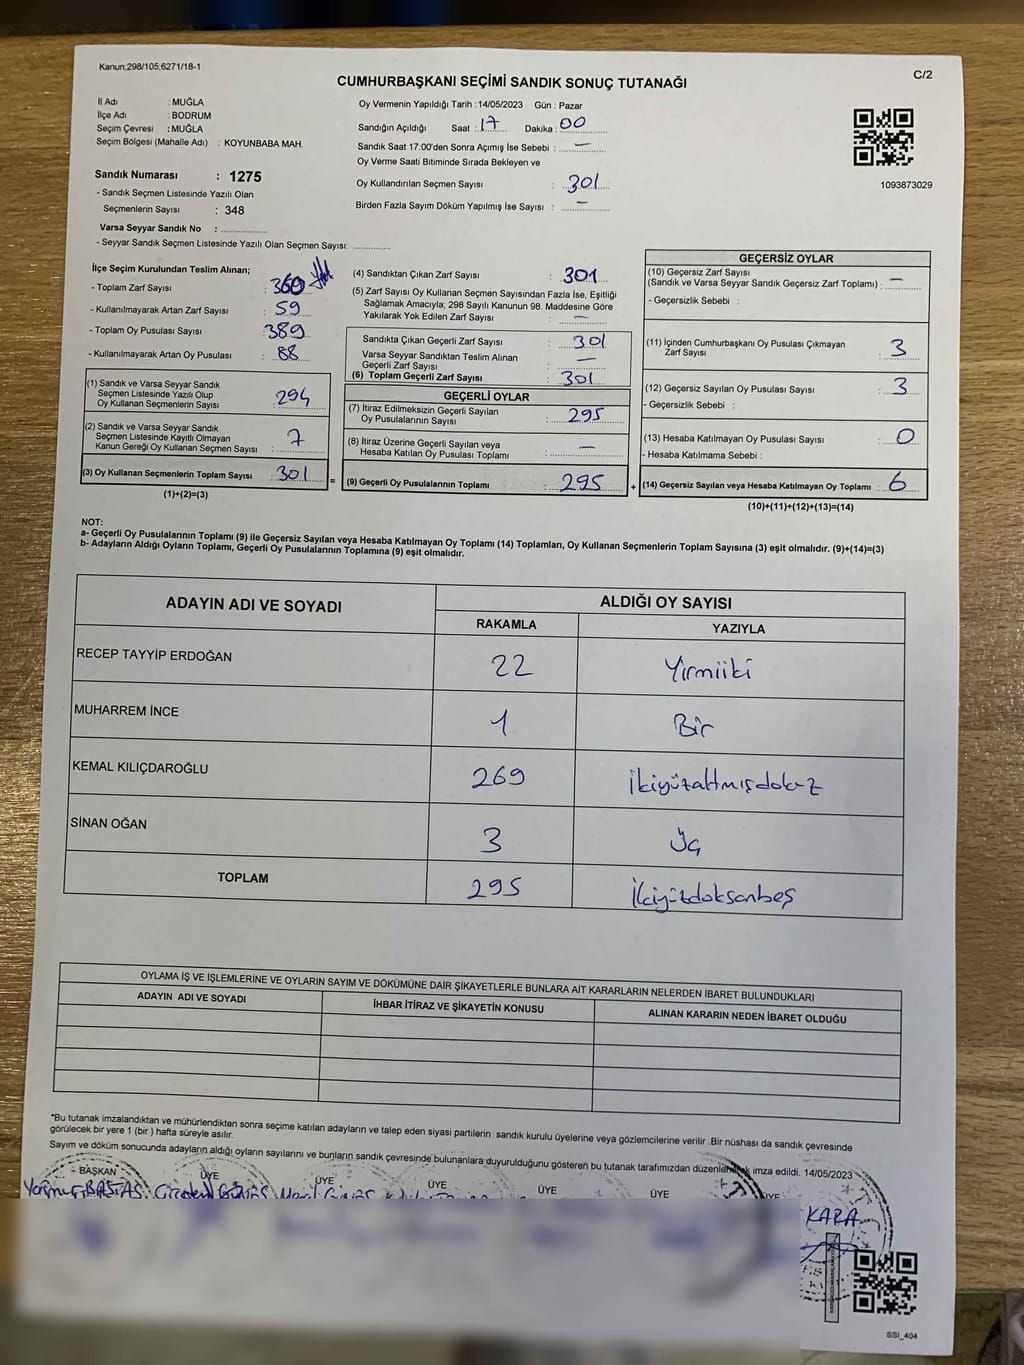 Kanun,298/105,6271/18-1
C/2
CUMHURBAŞKANI SEÇİMİ SANDIK SONUÇ TUTANAĞI
İl Adı : MUĞLA
İlçe Adı : BODRUM
Seçim Çevresi : MUĞLA
Seçim Bölgesi (Mahalle Adı) : KOYUNBABA MAH.
Oy Vermenin Yapıldığı Tarih : 14/05/2023 Gün : Pazar
Sandığın Açıldığı Saat : 17 Dakika : 00
Sandık Saat 17:00'den Sonra Açımış İse Sebebi : —
Oy Verme Saati Bitiminde Sırada Bekleyen ve
Oy Kullandırılan Seçmen Sayısı : 301
Birden Fazla Sayım Döküm Yapılmış İse Sayısı : —
1093873029
Sandık Numarası : 1275
- Sandık Seçmen Listesinde Yazılı Olan
Seçmenlerin Sayısı : 348
Varsa Seyyar Sandık No :
- Seyyar Sandık Seçmen Listesinde Yazılı Olan Seçmen Sayısı:
İlçe Seçim Kurulundan Teslim Alınan;
- Toplam Zarf Sayısı : 360
- Kullanılmayarak Artan Zarf Sayısı : 59
- Toplam Oy Pusulası Sayısı : 389
- Kullanılmayarak Artan Oy Pusulası : 88
(1) Sandık ve Varsa Seyyar Sandık
Seçmen Listesinde Yazılı Olup
Oy Kullanan Seçmenlerin Sayısı : 294
(2) Sandık ve Varsa Seyyar Sandık
Seçmen Listesinde Kayıtlı Olmayan
Kanun Gereği Oy Kullanan Seçmen Sayısı : 7
(3) Oy Kullanan Seçmenlerin Toplam Sayısı : 301
(1)+(2)=(3)
(4) Sandıktan Çıkan Zarf Sayısı : 301
(5) Zarf Sayısı Oy Kullanan Seçmen Sayısından Fazla İse, Eşitliği
Sağlamak Amacıyla; 298 Sayılı Kanunun 98. Maddesine Göre
Yakılarak Yok Edilen Zarf Sayısı : —
Sandıkta Çıkan Geçerli Zarf Sayısı : 301
Varsa Seyyar Sandıktan Teslim Alınan
Geçerli Zarf Sayısı : —
(6) Toplam Geçerli Zarf Sayısı : 301
GEÇERLİ OYLAR
(7) İtiraz Edilmeksizin Geçerli Sayılan
Oy Pusulalarının Sayısı : 295
(8) İtiraz Üzerine Geçerli Sayılan veya
Hesaba Katılan Oy Pusulası Toplamı : —
= (9) Geçerli Oy Pusulalarının Toplamı : 295
GEÇERSİZ OYLAR
(10) Geçersiz Zarf Sayısı
(Sandık ve Varsa Seyyar Sandık Geçersiz Zarf Toplamı) : —
- Geçersizlik Sebebi :
(11) İçinden Cumhurbaşkanı Oy Pusulası Çıkmayan
Zarf Sayısı : 3
(12) Geçersiz Sayılan Oy Pusulası Sayısı : 3
- Geçersizlik Sebebi :
(13) Hesaba Katılmayan Oy Pusulası Sayısı : 0
- Hesaba Katılmama Sebebi :
+ (14) Geçersiz Sayılan veya Hesaba Katılmayan Oy Toplamı : 6
(10)+(11)+(12)+(13)=(14)
NOT:
a- Geçerli Oy Pusulalarının Toplamı (9) ile Geçersiz Sayılan veya Hesaba Katılmayan Oy Toplamı (14) Toplamları, Oy Kullanan Seçmenlerin Toplam Sayısına (3) eşit olmalıdır. (9)+(14)=(3)
b- Adayların Aldığı Oyların Toplamı, Geçerli Oy Pusulalarının Toplamına (9) eşit olmalıdır.
ADAYIN ADI VE SOYADI ALDIĞI OY SAYISI
RAKAMLA YAZIYLA
RECEP TAYYİP ERDOĞAN 22 Yirmiiki
MUHARREM İNCE 1 Bir
KEMAL KILIÇDAROĞLU 269 İkiyüzaltmışdokuz
SİNAN OĞAN 3 Üç
TOPLAM 295 İkiyüzdoksanbeş
OYLAMA İŞ VE İŞLEMLERİNE VE OYLARIN SAYIM VE DÖKÜMÜNE DAİR ŞİKAYETLERLE BUNLARA AİT KARARLARIN NELERDEN İBARET BULUNDUKLARI
ADAYIN ADI VE SOYADI İHBAR İTİRAZ VE ŞİKAYETİN KONUSU ALINAN KARARIN NEDEN İBARET OLDUĞU
*Bu tutanak imzalandıktan ve mühürlendikten sonra seçime katılan adayların ve talep eden siyasi partilerin sandık kurulu üyelerine veya gözlemcilerine verilir .Bir nüshası da sandık çevresinde
görülecek bir yere 1 (bir ) hafta süreyle asılır.
Sayım ve döküm sonucunda adayların aldığı oyların sayılarını ve bunların sandık çevresinde bulunanlara duyurulduğunu gösteren bu tutanak tarafımızdan düzenlenerek imza edildi. 14/05/2023
BAŞKAN ÜYE ÜYE ÜYE ÜYE ÜYE ÜYE
KARA
SSI_404